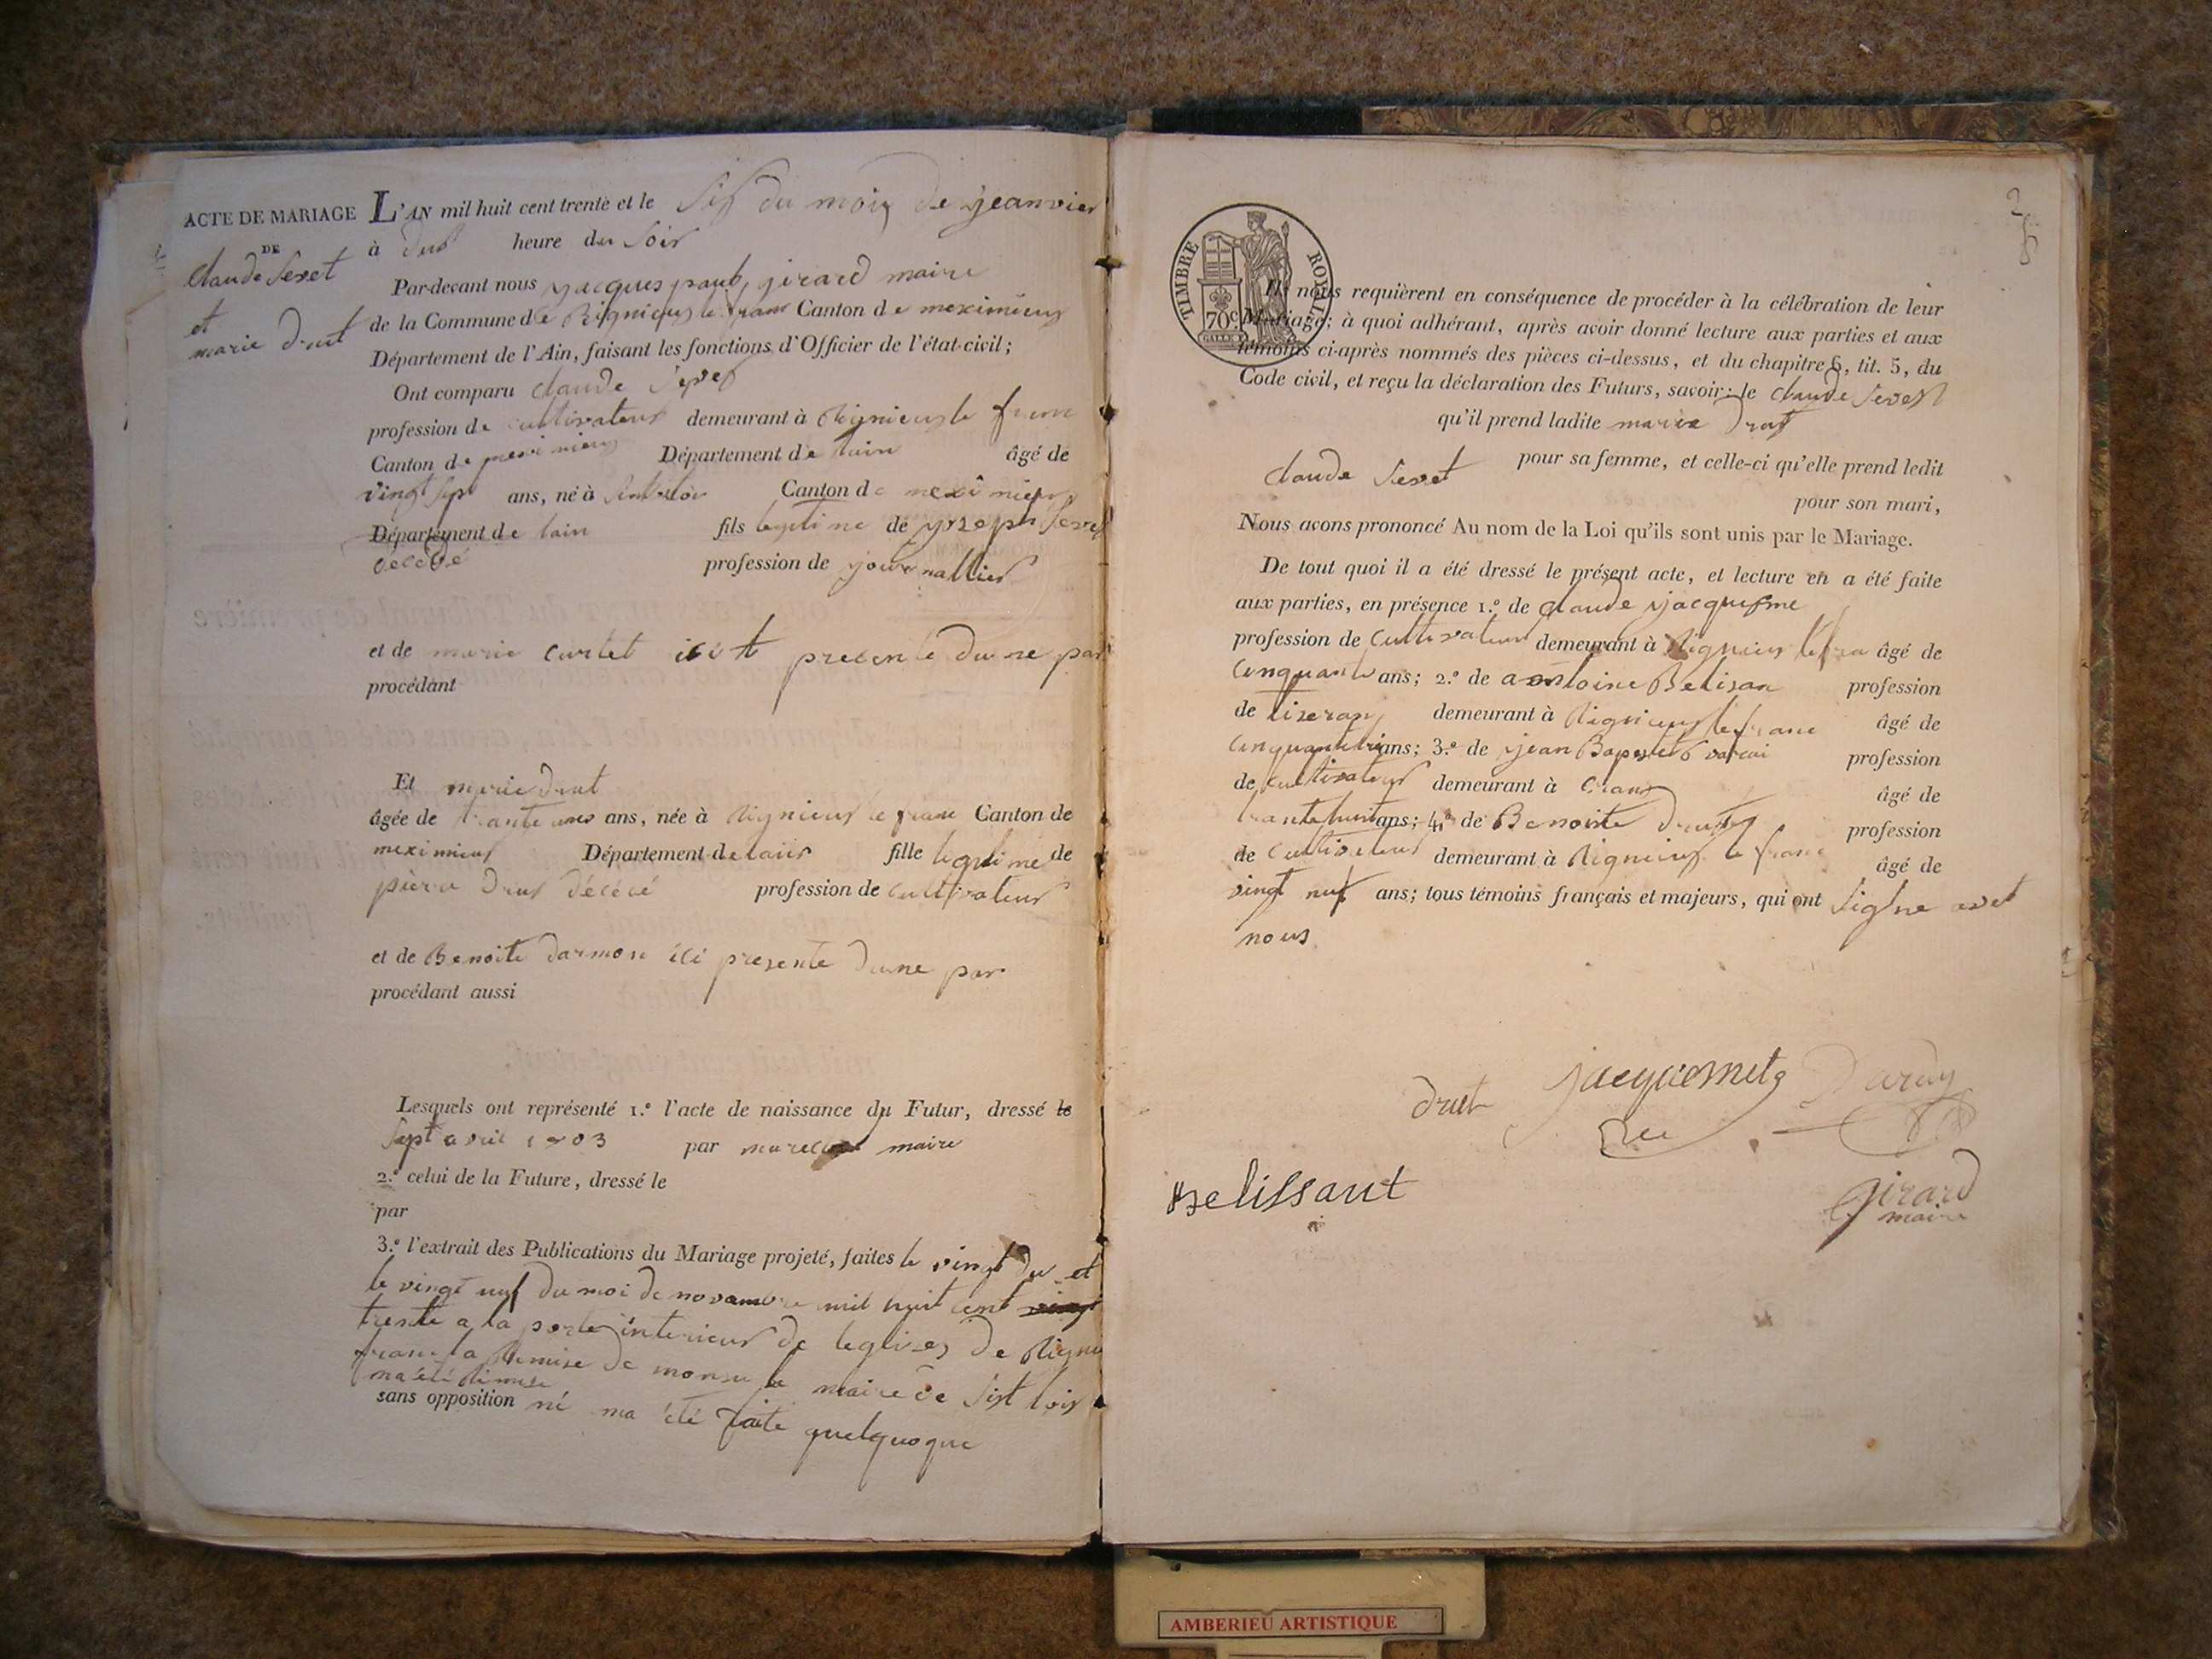 ACTE DE MARIAGE
DE
Claude Sevet
et
marie drut
L'AN mil huit cent trente et le Six du mois de jeanvier
à deus heure du Soir
Par-devant nous jacques girard maire
de la Commune de Rignieux le franc Canton de meximieux
Département de l'Ain, faisant les fonctions d'Officier de l'état-civil;
Ont comparu Claude Sevet
profession de cultivateur demeurant à Rignieux le franc
Canton de meximieux Département de lain âgé de
vingt sept ans, né à Canton de meximieux
Département de lain fils legitime de joseph Sevet
décédé profession de journallier
et de marie curtet icit presente dune par
procédant
Et marie drut
âgée de trante ans, née à Rignieux le franc Canton de
meximieux Département de lain fille legitime de
pierre drut décécé profession de cultivateur
et de Benoite darmon ici presente dune par
procédant aussi
Lesquels ont représenté 1.º l'acte de naissance du Futur, dressé le
Sept avril 1803 par maire
2.º celui de la Future, dressé le
par
3.º l'extrait des Publications du Mariage projeté, faites le vingt du et
le vingt nuf du moi de novambre mil huit cent
trente a la porte interieur de leglises de Rignu
franc la Remise de monsu le maire de
ma été Remise
sans opposition né ma été faite quelquoque
TIMBRE ROYAL
70c
Ils nous requièrent en conséquence de procéder à la célébration de leur
Mariage; à quoi adhérant, après avoir donné lecture aux parties et aux
témoins ci-après nommés des pièces ci-dessus, et du chapitre 6, tit. 5, du
Code civil, et reçu la déclaration des Futurs, savoir: le Claude Sevet
qu'il prend ladite marie drut
pour sa femme, et celle-ci qu'elle prend ledit
Claude Sevet
pour son mari,
Nous avons prononcé Au nom de la Loi qu'ils sont unis par le Mariage.
De tout quoi il a été dressé le présent acte, et lecture en a été faite
aux parties, en présence 1.º de Claude
profession de Cultivateur demeurant à Rignieux le fra âgé de
Cinquante ans; 2.º de antoine Belisan profession
de tiseran demeurant à Rignieux le franc âgé de
ans; 3.º de jean profession
de Cultivateur demeurant à Crans âgé de
trante huit ans; 4.º de Benoiste drut profession
de Cultivateur demeurant à Rignieux le franc âgé de
vingt nuf ans; tous témoins français et majeurs, qui ont Signe avet
nous
drut
Belissant
girard
maire
AMBERIEU ARTISTIQUE